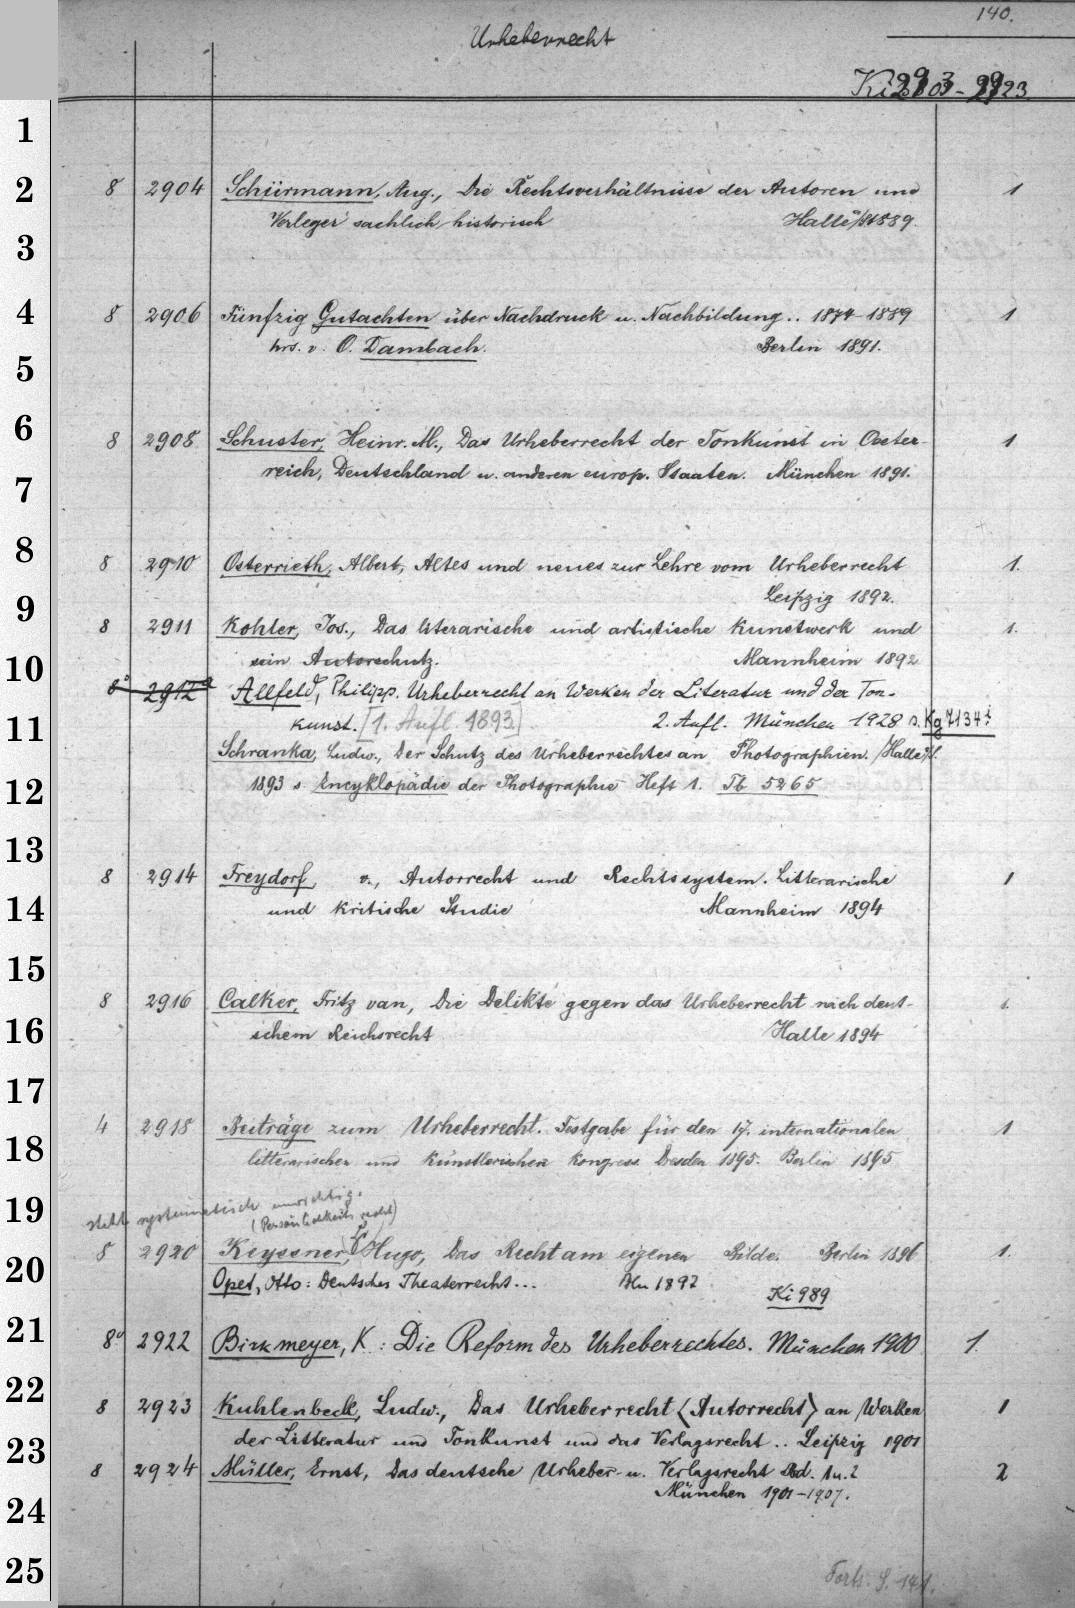 140.
Urheberrecht
1
2 8 2904 Schürmann, Aug., Die Rechtsverhältnisse der Autoren und 1
Verleger sachlich historisch Halle 1889.
3
4 8 2906 Fünfzig Gutachten über Nachdruck u. Nachbildung.. 1874-1889 1
hrs. v. O. Dambach. Berlin 1891.
5
6 8 2908 Schuster, Heinr. M., Das Urheberrecht der Tonkunst in Oester-
reich, Deutschland u. anderen europ. Staaten. München 1891. 1
7
8 8 2910 Osterrieth, Albert, Altes und neues zur Lehre vom Urheberrecht 1.
Leipzig 1892.
9 8 2911 Kohler, Jos., Das literarische und artistische Kunstwerk und 1.
sein Autorschutz. Mannheim 1892
10 8° 2912a Allfeld, Philipp. Urheberrecht an Werken der Literatur und der Ton-
11 kunst. [1. Aufl. 1893] 2. Aufl. München 1928 s. Kg 7134
Schranka, Ludw., Der Schutz des Urheberrechtes an Photographien. Halle
12 1893 s. Encyklopädie der Photographie Heft 1. Tb 5265
13
8 2914 Freydorf, v., Autorrecht und Rechtssystem. Litterarische 1
14 und kritische Studie Mannheim 1894
15
8 2916 Calker, Fritz van, Die Delikte gegen das Urheberrecht nach deut- 1.
16 schem Reichsrecht Halle 1894
17
4 2918 Beiträge zum Urheberrecht. Festgabe für den 17. internationalen 1
18 litterarischen und künstlerischen Kongress Dresden 1895. Berlin 1895
19 steht systematisch unrichtig.
(Persönlichkeitsrecht)
8 2920 Keyssner, Hugo, Das Recht am eigenen Bilde. Berlin 1896 1.
20 Opet, Otto: Deutsches Theaterrecht... Bln 1897
Ki 989
21 8° 2922 Birkmeyer, K.: Die Reform des Urheberrechtes. München 1900 1.
22 8 2923 Kuhlenbeck, Ludw., Das Urheberrecht <Autorrecht> an Werken 1
23 der Litteratur und Tonkunst und das Verlagsrecht.. Leipzig 1901
8 2924 Müller, Ernst, Das deutsche Urheber- u. Verlagsrecht Bd. 1 u. 2 2
München 1901-1907.
24
25 Forts. S. 141.